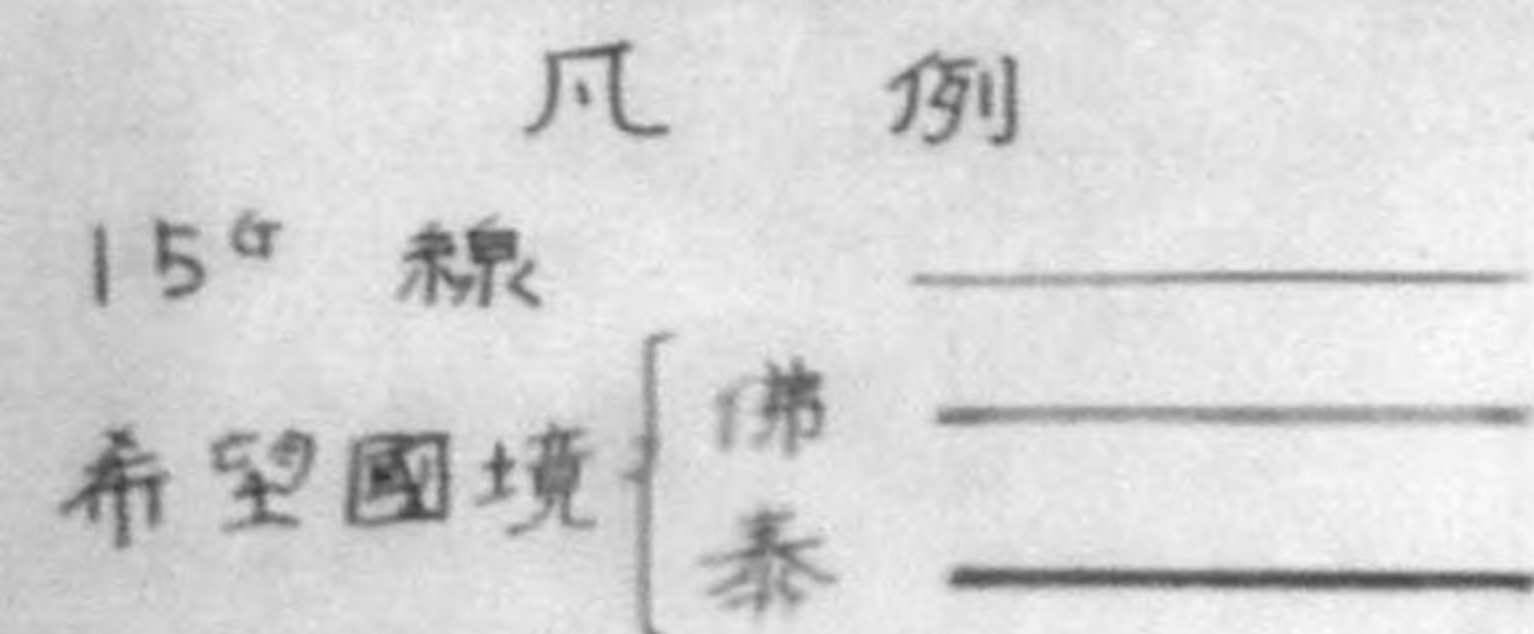 凡例
15ᴳ 線
希望國境
佛
泰